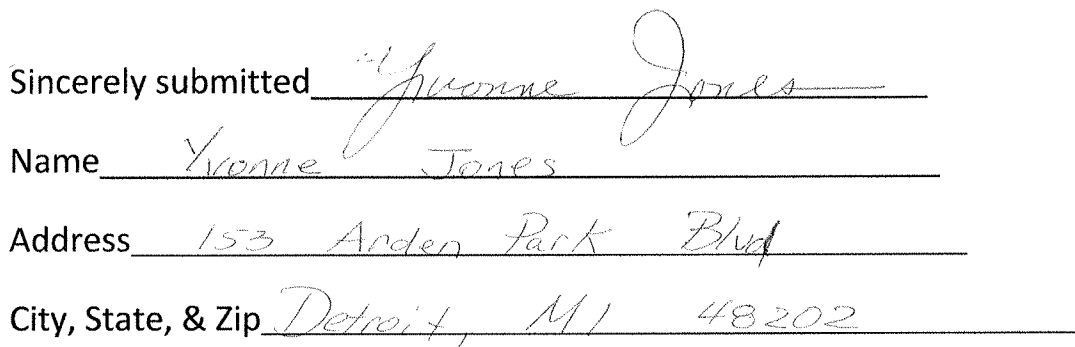 Sincerely submitted Yvonne Jones
Name Yvonne Jones
Address 153 Arden Park Blvd
City, State, & Zip Detroit, MI 48202